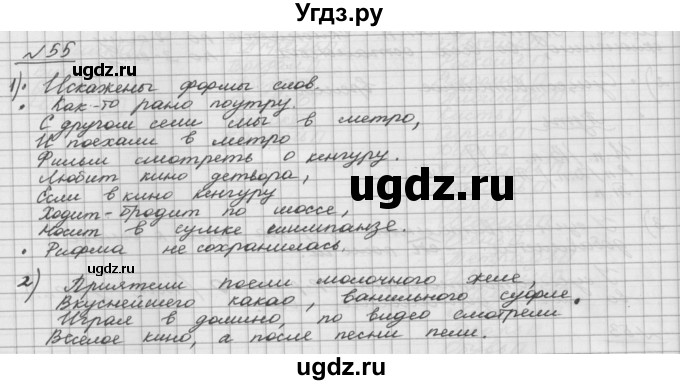 Угдз.ру
№55
ugdz.ru
ugdz.ru
1)• Искажены формы слов.
• Как-то рано поутру.
С другом сели мы в метро,
И поехали в метро
Фильм смотреть о кенгуру.
Любит кино детвора,
Если в кино кенгуру
Ходит-бродит по шоссе,
Носит в сумке шимпанзе.
• Рифма не сохранилась.
ugdz.ru
ugdz.ru
2) Приятели поели молочного желе,
Вкуснейшего какао, ванильного суфле.
Играя в домино, по видео смотрели
Веселое кино, а после песни пели.
ugdz.ru
ugdz.ru
Угдз.ру